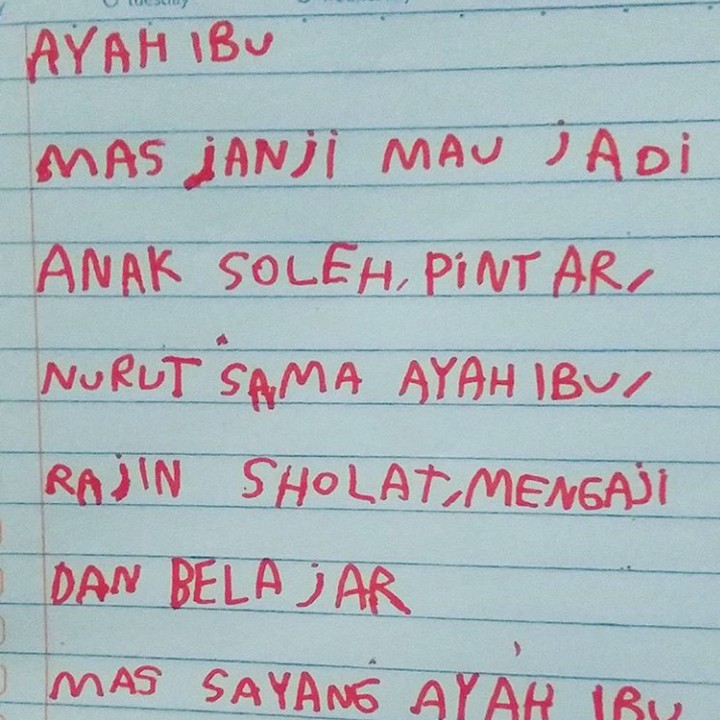 AYAH IBU
MAS jANji MAU jADi
ANAK SOLEH, PiNTAR,
NURUT SAMA AYAH IBU,
RAjIN SHOLAT, MENGAji
DAN BELAjAR
MAS SAYANG AYAH IBU